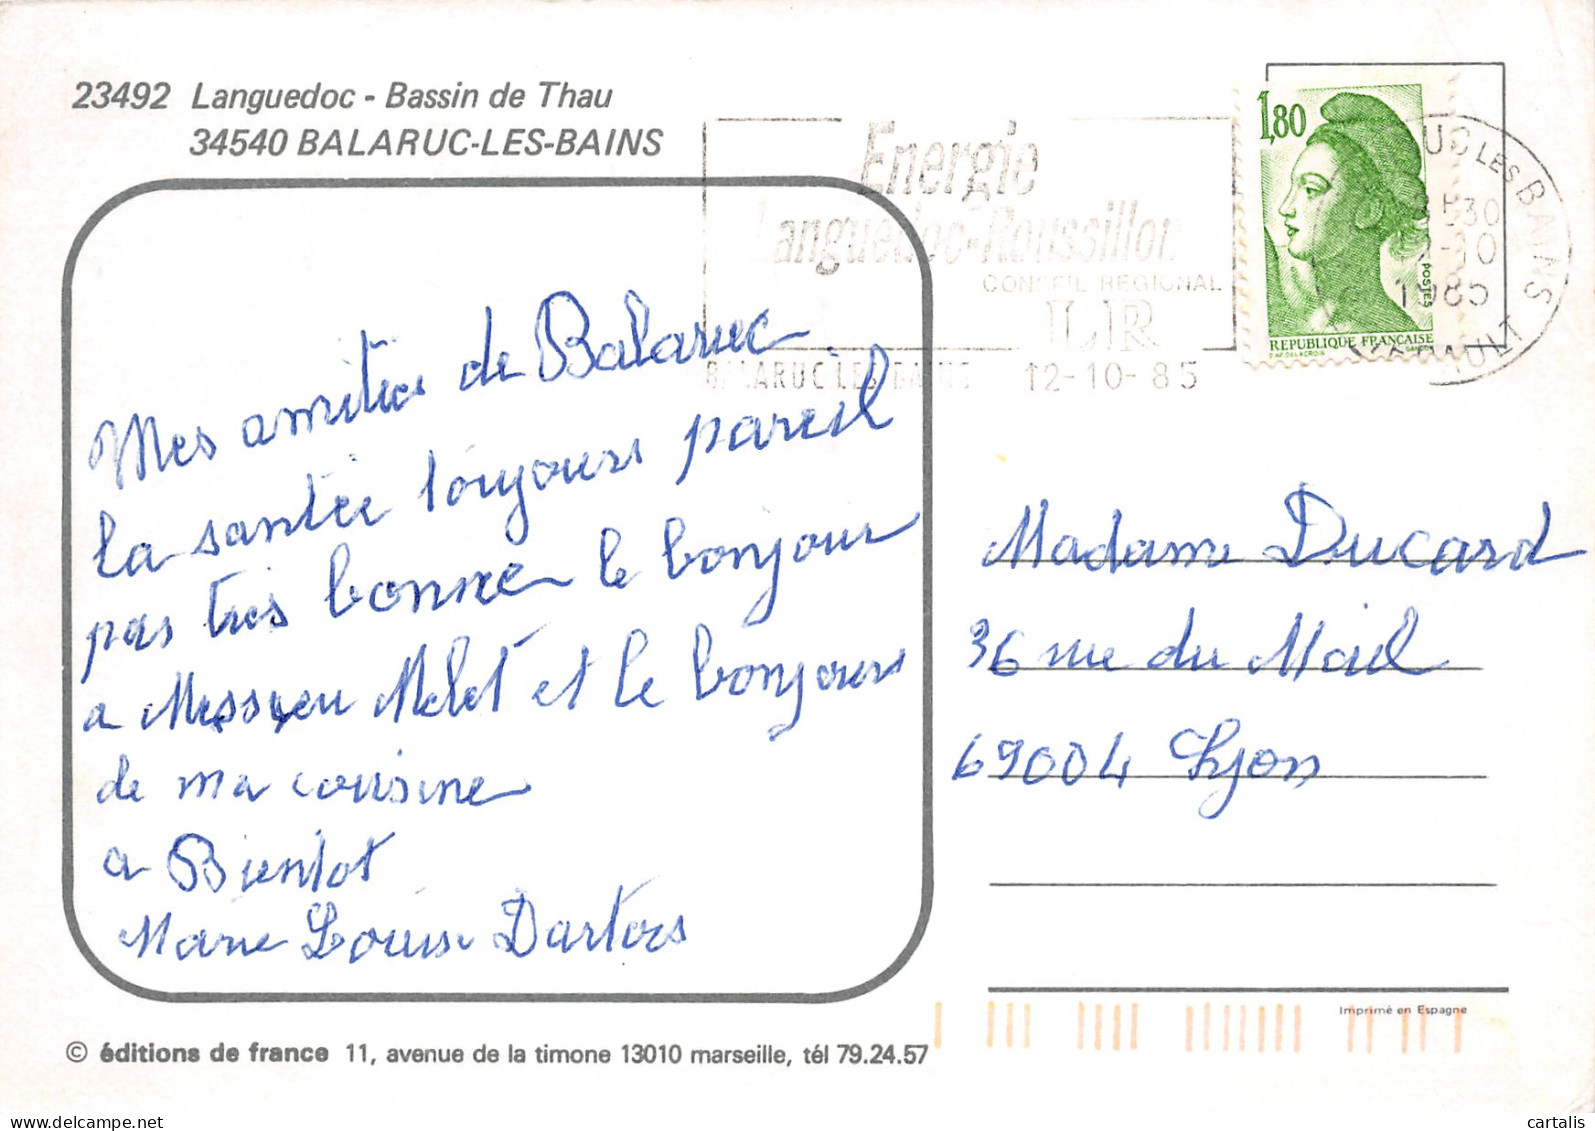 23492 Languedoc - Bassin de Thau
34540 BALARUC-LES-BAINS
Energie
Languedoc-Roussillon
CONSEIL REGIONAL
LR
BALARUC LES BAINS 12-10-85
1,80
POSTES
REPUBLIQUE FRANÇAISE
D'AP. DELACROIX GANDON
UC LES BAINS
30
-10
1985
HERAULT
Mes amities de Balaruc
la santée toujours pareil
pas tres bonne le bonjour
a Messyeu Melet et le bonjours
de ma cousine
a Bientot
Marie Louise Dartois
Madame Ducard
36 rue du Mail
69004 Lyon
Imprimé en Espagne
© éditions de france 11, avenue de la timone 13010 marseille, tél 79.24.57
www.delcampe.net
cartalis